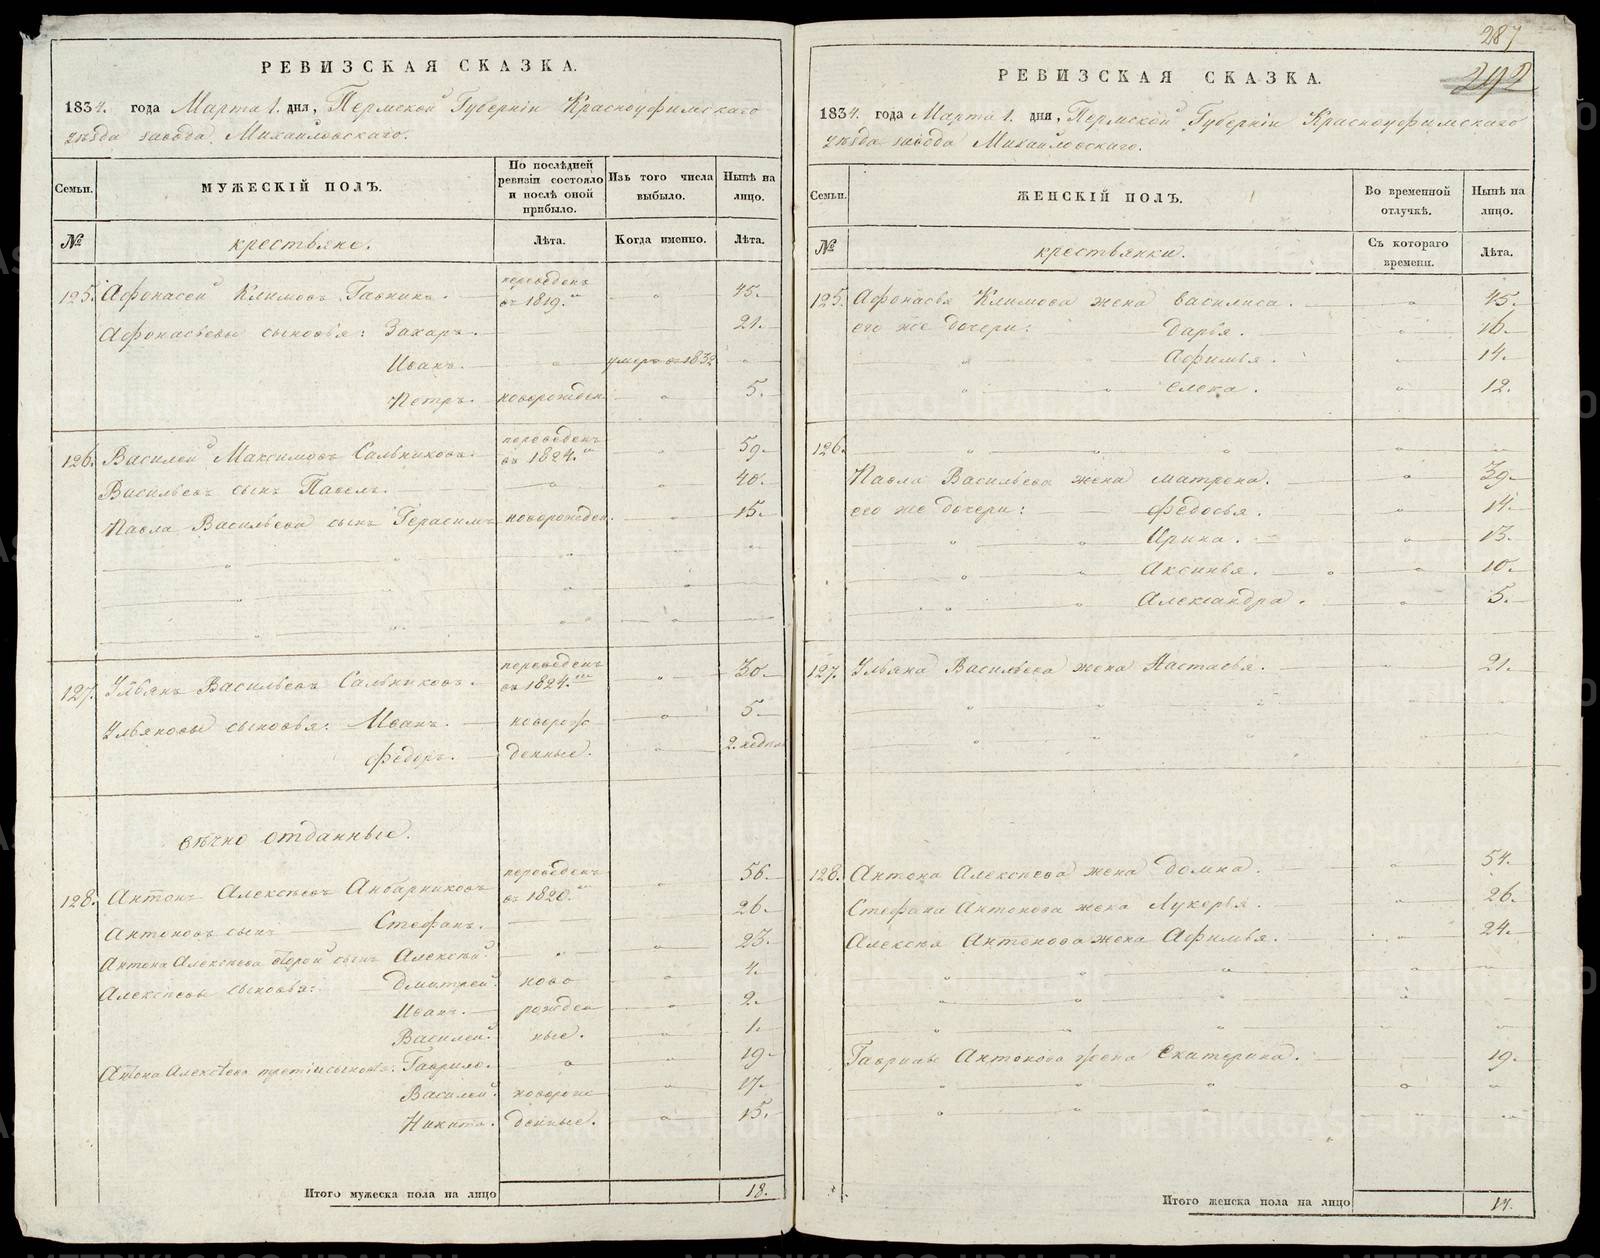 РЕВИЗСКАЯ СКАЗКА.
1834. года Марта 1. дня, Пермской Губерніи Красноуфимскаго
уѣзда завода Михайловскаго.
Семьи.
МУЖЕСКІЙ ПОЛЪ.
По послѣдней
ревизіи состояло
и послѣ оной
прибыло.
Изъ того числа
выбыло.
Нынѣ на
лицо.
№
крестьяне.
Лѣта.
Когда именно.
Лѣта.
125. Афонасей Климовъ переведенъ въ 1819.м 45.
Афонасьевы сыновья: Захаръ. 21.
Иванъ. умеръ въ 1832
Петръ. новорожден 5.
126. Василей Максимовъ Сальниковъ. переведенъ въ 1824.м 59.
Васильевъ сынъ Павелъ. 40.
Павла Васильева сынъ Герасимъ новорожден. 15.
127. Ульянъ Васильевъ Сальниковъ. переведенъ въ 1824.м 30.
Ульяновы сыновья: Иванъ. новорож 5.
Федоръ. денные. 2. недели
вѣчно отданные.
128. Антонъ Алексѣевъ Анбарниковъ переведенъ въ 1820.м 56.
Антоновъ сынъ Стефанъ. 26.
Антона Алексѣева второй сынъ Алексѣй. 23.
Алексѣевы сыновья: Дмитрей. ново 4.
Иванъ. рожден 2.
Василей. ные. 1.
Антона Алексѣева третіи сыновья: Гаврило. 19.
Василей. новорож 17.
Никита. денные. 15.
Итого мужеска пола на лицо 18.
287
292
РЕВИЗСКАЯ СКАЗКА.
1834. года Марта 1. дня, Пермской Губерніи Красноуфимскаго
уѣзда завода Михайловскаго.
Семьи.
ЖЕНСКІЙ ПОЛЪ.
Во временной
отлучкѣ.
Нынѣ на
лицо.
№
крестьянки.
Съ котораго
времени.
Лѣта.
125. Афонасья Климова жена Василиса. 45.
его же дочери: Дарья. 16.
Афимья. 14.
Елена. 12.
126.
Павла Васильева жена Матрена. 39.
его же дочери: Федосья. 14.
Ирина. 13.
Аксинья. 10.
Александра. 5.
127. Ульяна Васильева жена Настасья. 21.
128. Антона Алексѣева жена Домна. 54.
Стефана Антонова жена Лукерья. 26.
Алексѣя Антонова жена Афимья. 24.
Гаврилы Антонова жена Екатерина. 19.
Итого женска пола на лицо 14.
METRIKI.GASO-URAL.RU